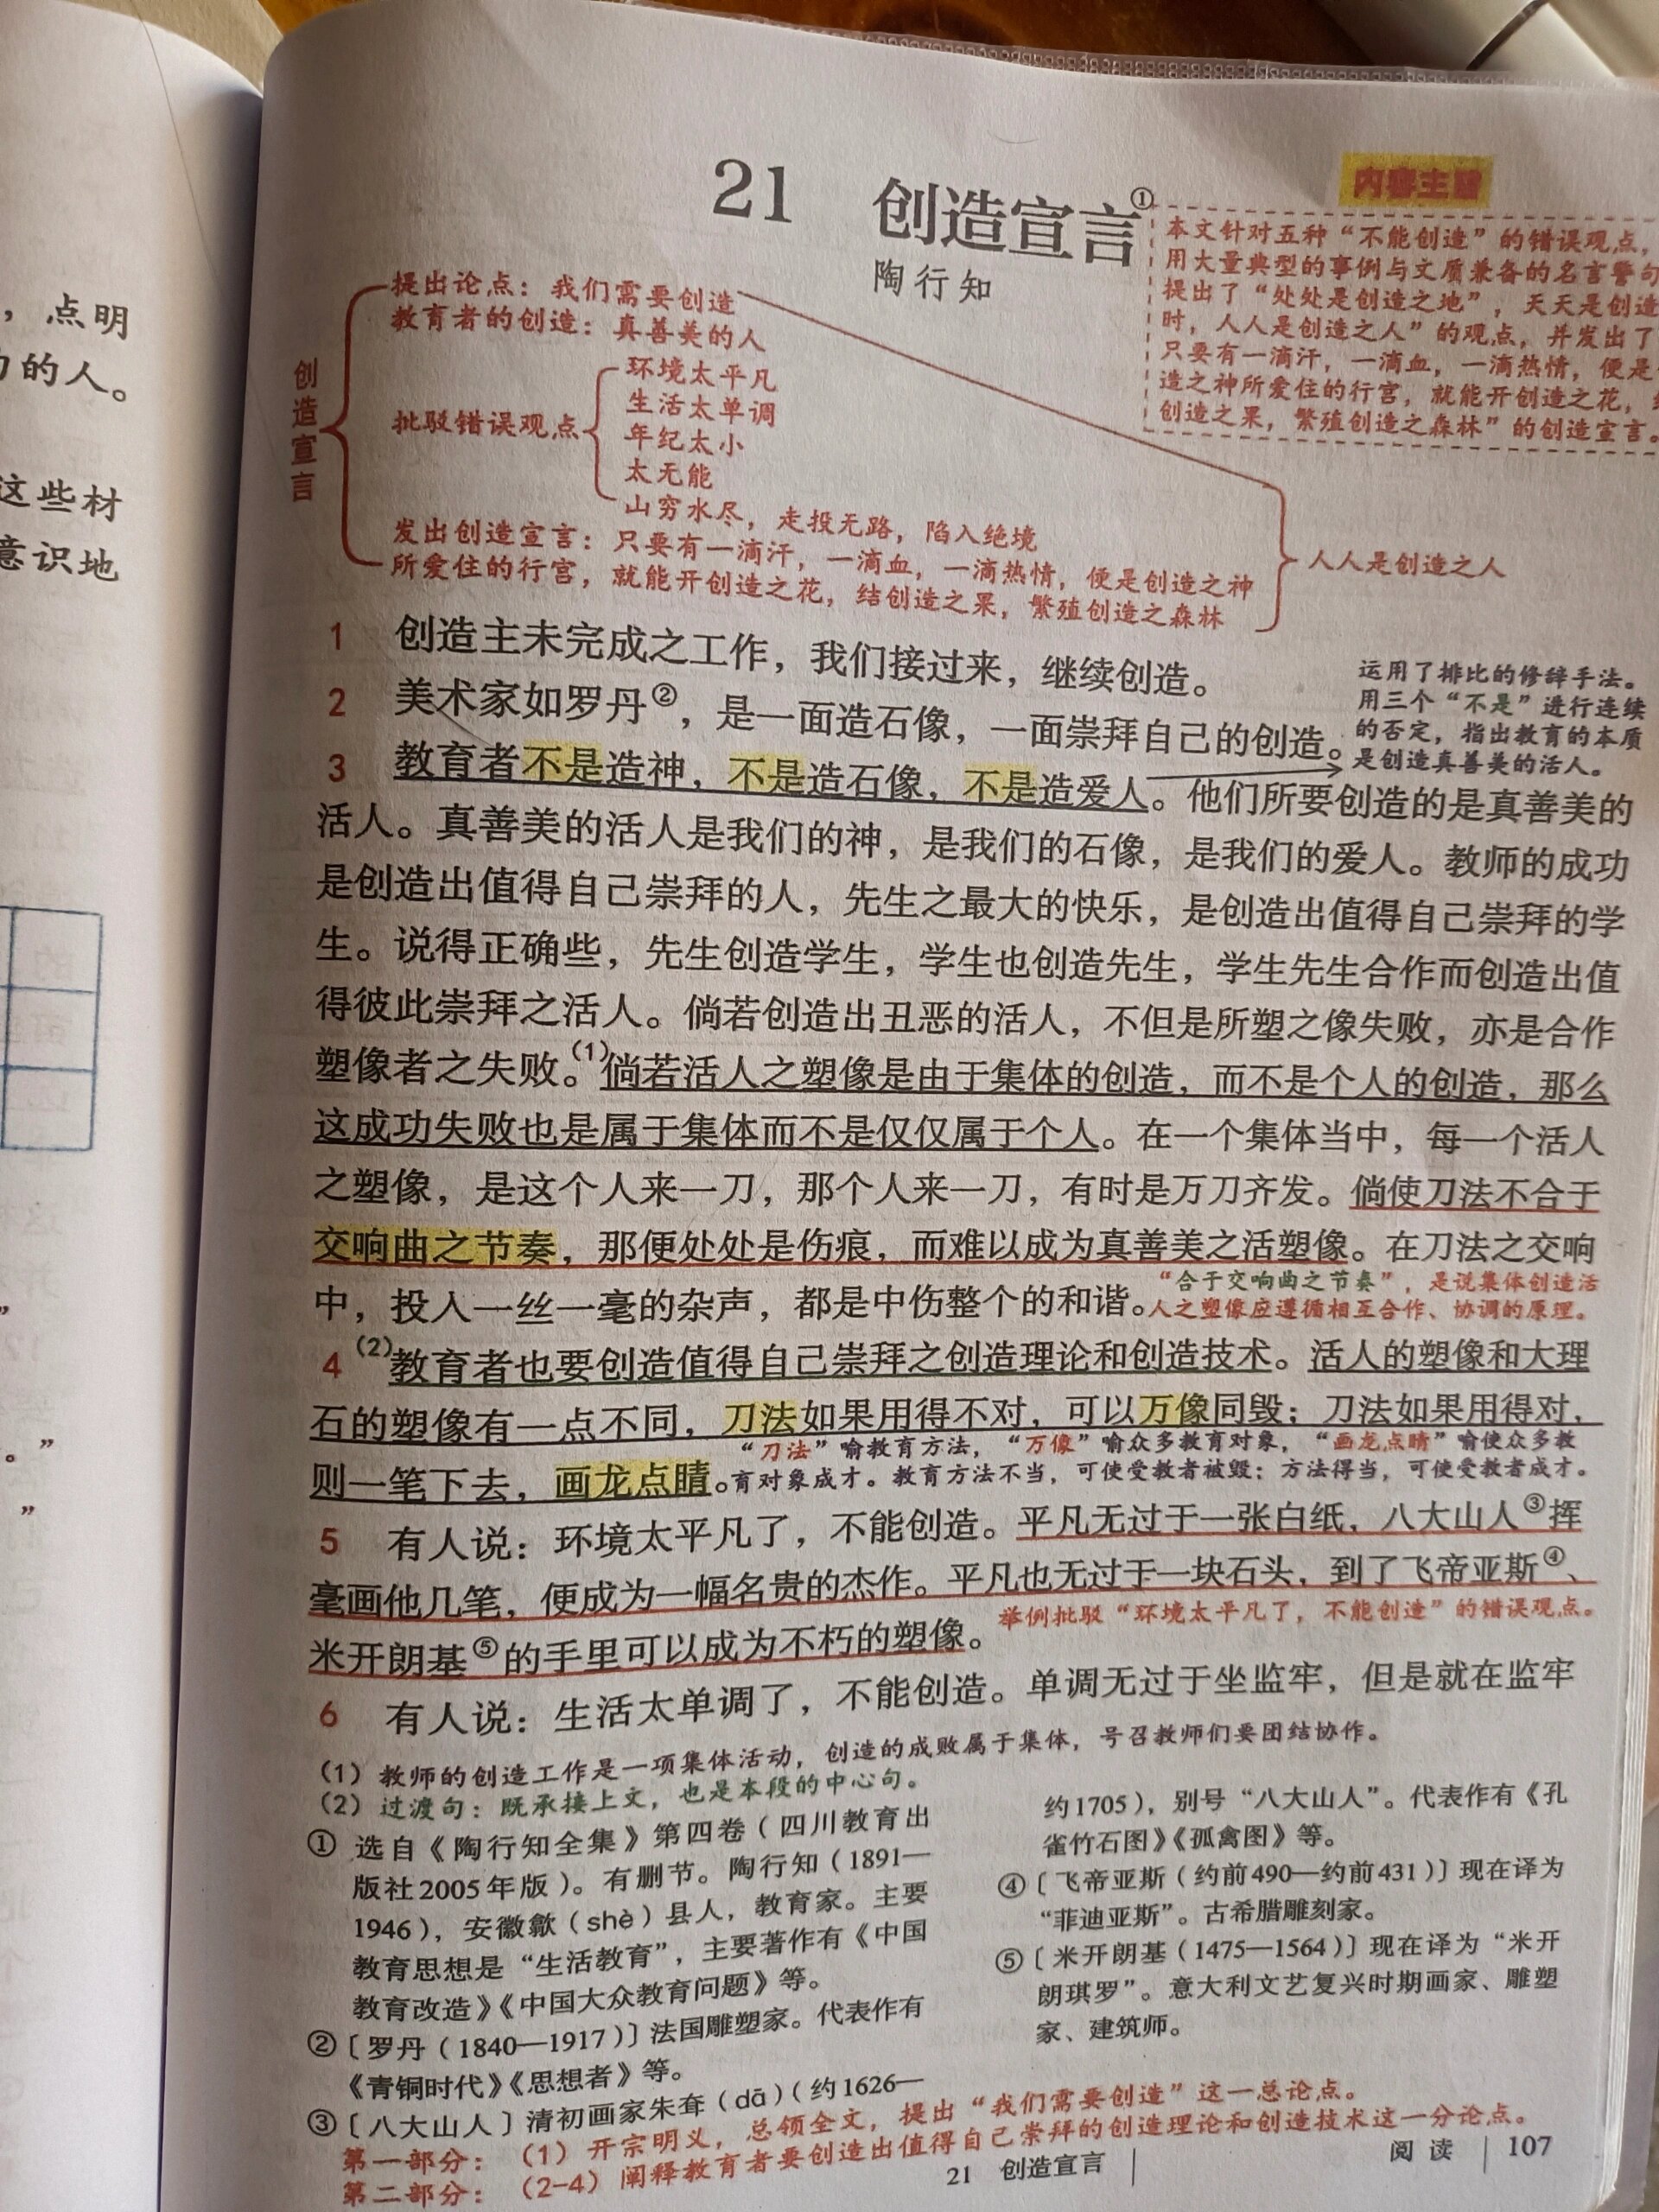 ，点明
的人。
这些材
意识地
”
。”
”
21 创造宣言①
陶行知
内容主旨
本文针对五种“不能创造”的错误观点，
用大量典型的事例与文质兼备的名言警句
提出了“处处是创造之地”，天天是创造
时，人人是创造之人”的观点，并发出了
只要有一滴汗，一滴血，一滴热情，便是
造之神所爱住的行宫，就能开创造之花，
创造之果，繁殖创造之森林”的创造宣言。
创造宣言
提出论点：我们需要创造
教育者的创造：真善美的人
批驳错误观点
环境太平凡
生活太单调
年纪太小
太无能
山穷水尽，走投无路，陷入绝境
发出创造宣言：只要有一滴汗，一滴血，一滴热情，便是创造之神
所爱住的行宫，就能开创造之花，结创造之果，繁殖创造之森林
人人是创造之人
1 创造主未完成之工作，我们接过来，继续创造。
2 美术家如罗丹②，是一面造石像，一面崇拜自己的创造。
运用了排比的修辞手法。
用三个“不是”进行连续
的否定，指出教育的本质
是创造真善美的活人。
3 教育者不是造神，不是造石像，不是造爱人。他们所要创造的是真善美的
活人。真善美的活人是我们的神，是我们的石像，是我们的爱人。教师的成功
是创造出值得自己崇拜的人，先生之最大的快乐，是创造出值得自己崇拜的学
生。说得正确些，先生创造学生，学生也创造先生，学生先生合作而创造出值
得彼此崇拜之活人。倘若创造出丑恶的活人，不但是所塑之像失败，亦是合作
塑像者之失败。(1)倘若活人之塑像是由于集体的创造，而不是个人的创造，那么
这成功失败也是属于集体而不是仅仅属于个人。在一个集体当中，每一个活人
之塑像，是这个人来一刀，那个人来一刀，有时是万刀齐发。倘使刀法不合于
交响曲之节奏，那便处处是伤痕，而难以成为真善美之活塑像。在刀法之交响
中，投入一丝一毫的杂声，都是中伤整个的和谐。
“合于交响曲之节奏”，是说集体创造活
人之塑像应遵循相互合作、协调的原理。
4 (2)教育者也要创造值得自己崇拜之创造理论和创造技术。活人的塑像和大理
石的塑像有一点不同，刀法如果用得不对，可以万像同毁；刀法如果用得对，
则一笔下去，画龙点睛。
“刀法”喻教育方法，“万像”喻众多教育对象，“画龙点睛”喻使众多教
育对象成才。教育方法不当，可使受教者被毁；方法得当，可使受教者成才。
5 有人说：环境太平凡了，不能创造。平凡无过于一张白纸，八大山人③挥
毫画他几笔，便成为一幅名贵的杰作。平凡也无过于一块石头，到了飞帝亚斯④、
米开朗基⑤的手里可以成为不朽的塑像。
举例批驳“环境太平凡了，不能创造”的错误观点。
6 有人说：生活太单调了，不能创造。单调无过于坐监牢，但是就在监牢
(1) 教师的创造工作是一项集体活动，创造的成败属于集体，号召教师们要团结协作。
(2) 过渡句：既承接上文，也是本段的中心句。
① 选自《陶行知全集》第四卷（四川教育出
版社2005年版）。有删节。陶行知（1891—
1946），安徽歙（shè）县人，教育家。主要
教育思想是“生活教育”，主要著作有《中国
教育改造》《中国大众教育问题》等。
②〔罗丹（1840—1917）〕法国雕塑家。代表作有
《青铜时代》《思想者》等。
③〔八大山人〕清初画家朱耷（dā）（约1626—
约1705），别号“八大山人”。代表作有《孔
雀竹石图》《孤禽图》等。
④〔飞帝亚斯（约前490—约前431）〕现在译为
“菲迪亚斯”。古希腊雕刻家。
⑤〔米开朗基（1475—1564）〕现在译为“米开
朗琪罗”。意大利文艺复兴时期画家、雕塑
家、建筑师。
第一部分：（1）开宗明义，总领全文，提出“我们需要创造”这一总论点。
第二部分：（2-4）阐释教育者要创造出值得自己崇拜的创造理论和创造技术这一分论点。
21 创造宣言
阅读 107